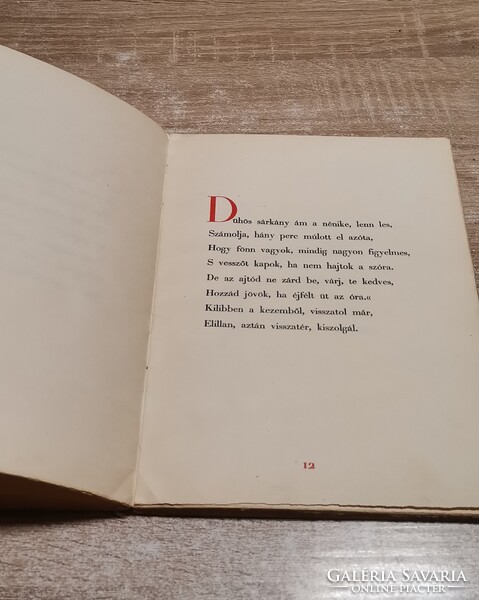 Dühös sárkány ám a nénike, lenn les,
Számolja, hány perc múlott el azóta,
Hogy fönn vagyok, mindig nagyon figyelmes,
S vesszőt kapok, ha nem hajtok a szóra.
De az ajtód ne zárd be, várj, te kedves,
Hozzád jövök, ha éjfélt üt az óra.«
Kilibben a kezemből, visszatol már,
Elillan, aztán visszatér, kiszolgál.
12
GALÉRIA SAVARIA
ONLINE PIACTÉR